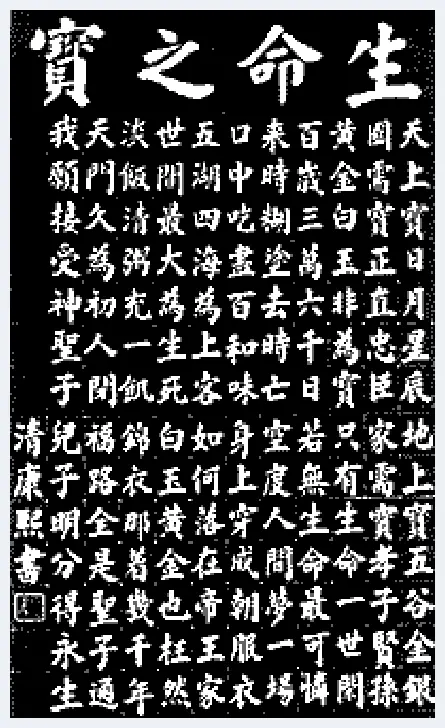 生命之寶
天上寶日月星辰地上寶五谷金銀
國需寶正直忠臣家需寶孝子賢孫
黃金白玉非為寶只有生命一世閑
百歲三萬六千日若無生命最可憐
来時糊塗去時亡空度人間夢一場
口中吃盡百和味身上穿成朝服衣
五湖四海為上客如何落在帝王家
世間最大為生死白玉黃金也枉然
淡飯清粥充一飢錦衣那着幾千年
天門久為初人閉福路全是聖子通
我願接受神聖子兒子明分得永生
清康熙書